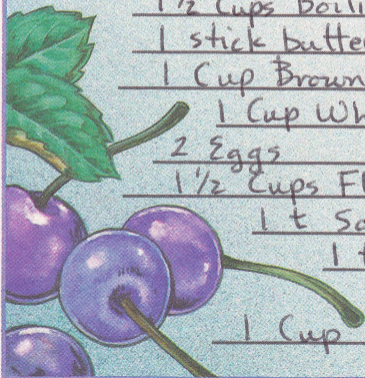 1 1/2 Cups Boili
1 stick butte
1 Cup Brown
1 Cup Wh
2 Eggs
1 1/2 Cups Fl
1 t So
1 t
1 Cup